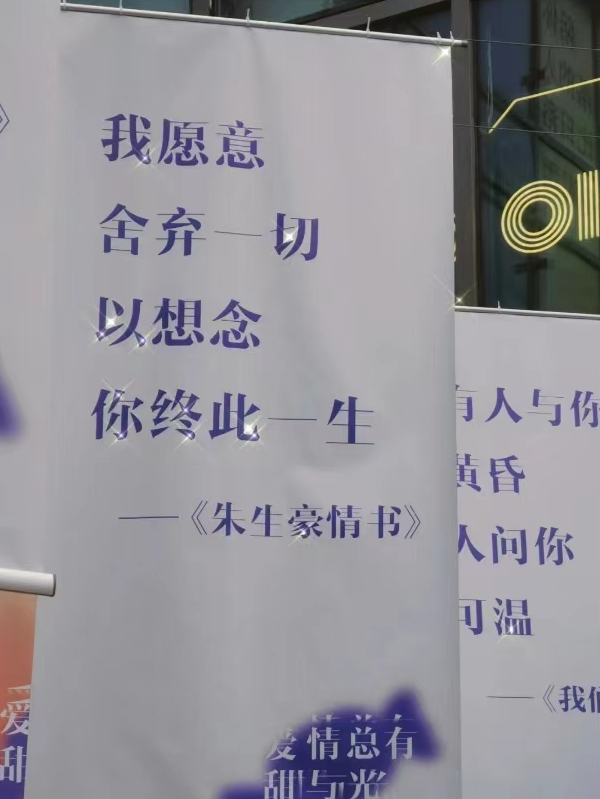 我愿意
舍弃一切
以想念
你终此一生
——《朱生豪情书》
爱情总有
甜与光
有人与你
黄昏
人问你
可温
——《我们
爱
甜
》